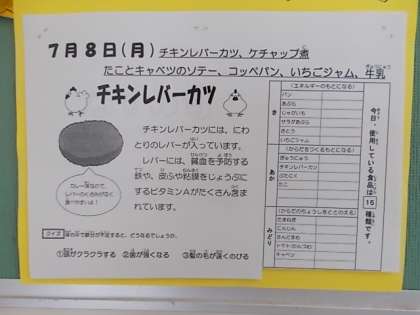 ７月８日(月) チキンレバーカツ、ケチャップ煮
たことキャベツのソテー、コッペパン、いちごジャム、牛乳
チキンレバーカツ
チキンレバーカツには、にわ
とりのレバーが入っています。
レバーには、貧血を予防する
鉄や、皮ふや粘膜をじょうぶに
するビタミンAがたくさん含ま
れています。
カレー味なので、
レバーのくさみがなく
食べやすいよ！
クイズ 体の中で鉄分が不足すると、どうなるでしょうか。
①頭がクラクラする ②歯が強くなる ③髪の毛が速くのびる
今日、使用している食品は 15 種類です。
き
(エネルギーのもとになる)
パン
あぶら
じゃがいも
サラダあぶら
さとう
いちごジャム
あか
(からだをつくるもとになる)
ぎゅうにゅう
チキンレバーカツ
ぶたにく
たこ
みどり
(からだのちょうしをととのえる)
たまねぎ
にんじん
さんどまめ
キャベツ